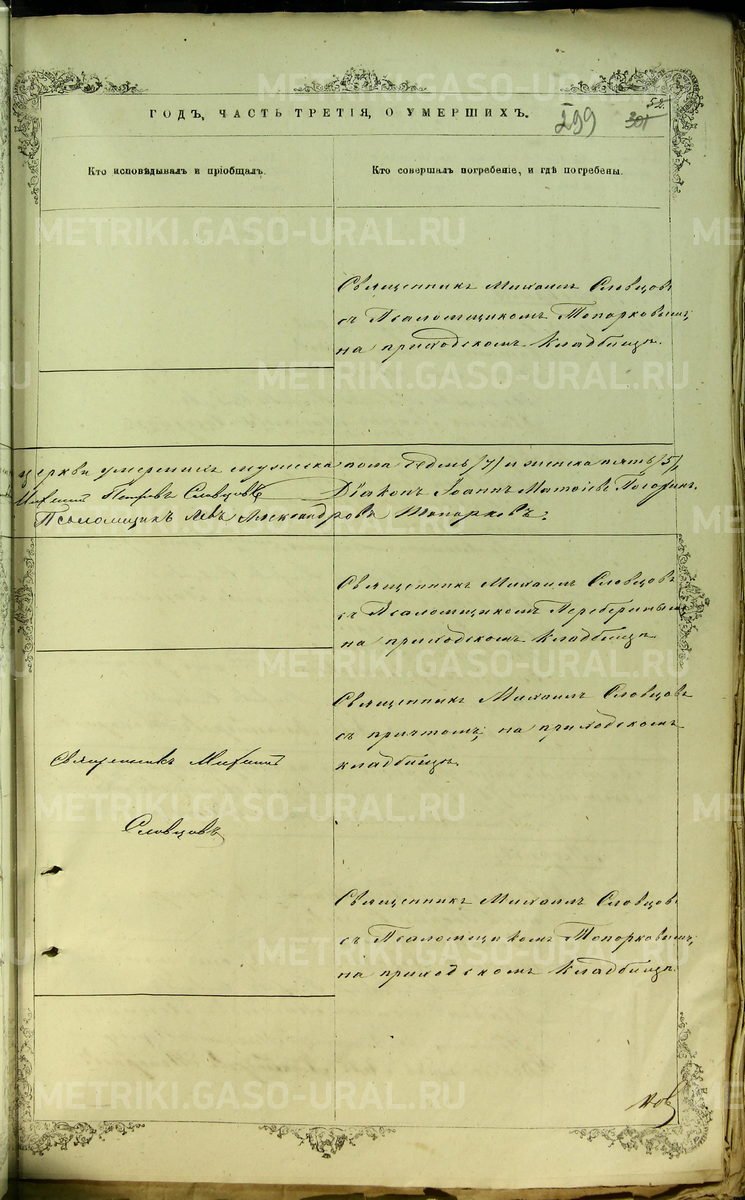 ГОДЪ, ЧАСТЬ ТРЕТІЯ, О УМЕРШИХЪ.
299
301
52.
Кто исповѣдывалъ и пріобщалъ.
Кто совершалъ погребеніе, и гдѣ погребены.
Священникъ Михаилъ Словцовъ
съ Псаломщикомъ Топорковымъ;
на приходскомъ кладбищѣ.
церкви умершихъ мужеска пола седмь /7/ и женска пять /5/,
Михаилъ Петровъ Словцовъ Діаконъ Іоаннъ Матѳіевъ
Псаломщикъ Левъ Александровъ Топорковъ
Священникъ Михаилъ Словцовъ
съ Псаломщикомъ
на приходскомъ кладбищѣ
Священникъ Михаилъ Словцовъ
съ причтомъ; на приходскомъ
кладбищѣ
Священникъ Михаилъ
Словцовъ
Священникъ Михаилъ Словцовъ
съ Псаломщикомъ Топорковымъ;
на приходскомъ кладбищѣ.
METRIKI.GASO-URAL.RU